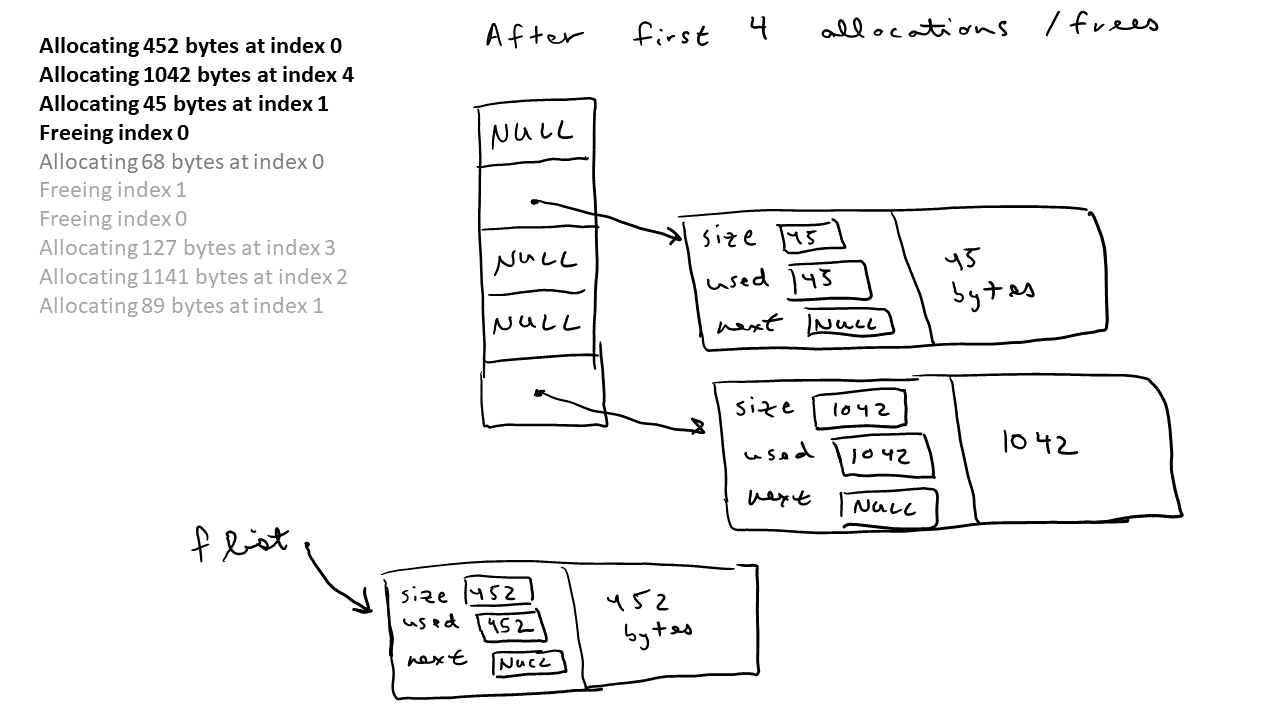 Allocating 452 bytes at index 0
Allocating 1042 bytes at index 4
Allocating 45 bytes at index 1
Freeing index 0
Allocating 68 bytes at index 0
Freeing index 1
Freeing index 0
Allocating 127 bytes at index 3
Allocating 1141 bytes at index 2
Allocating 89 bytes at index 1
After first 4 allocations / frees
NULL
NULL
NULL
size 45
used 45
next NULL
45
bytes
size 1042
used 1042
next NULL
1042
flist
size 452
used 452
next NULL
452
bytes